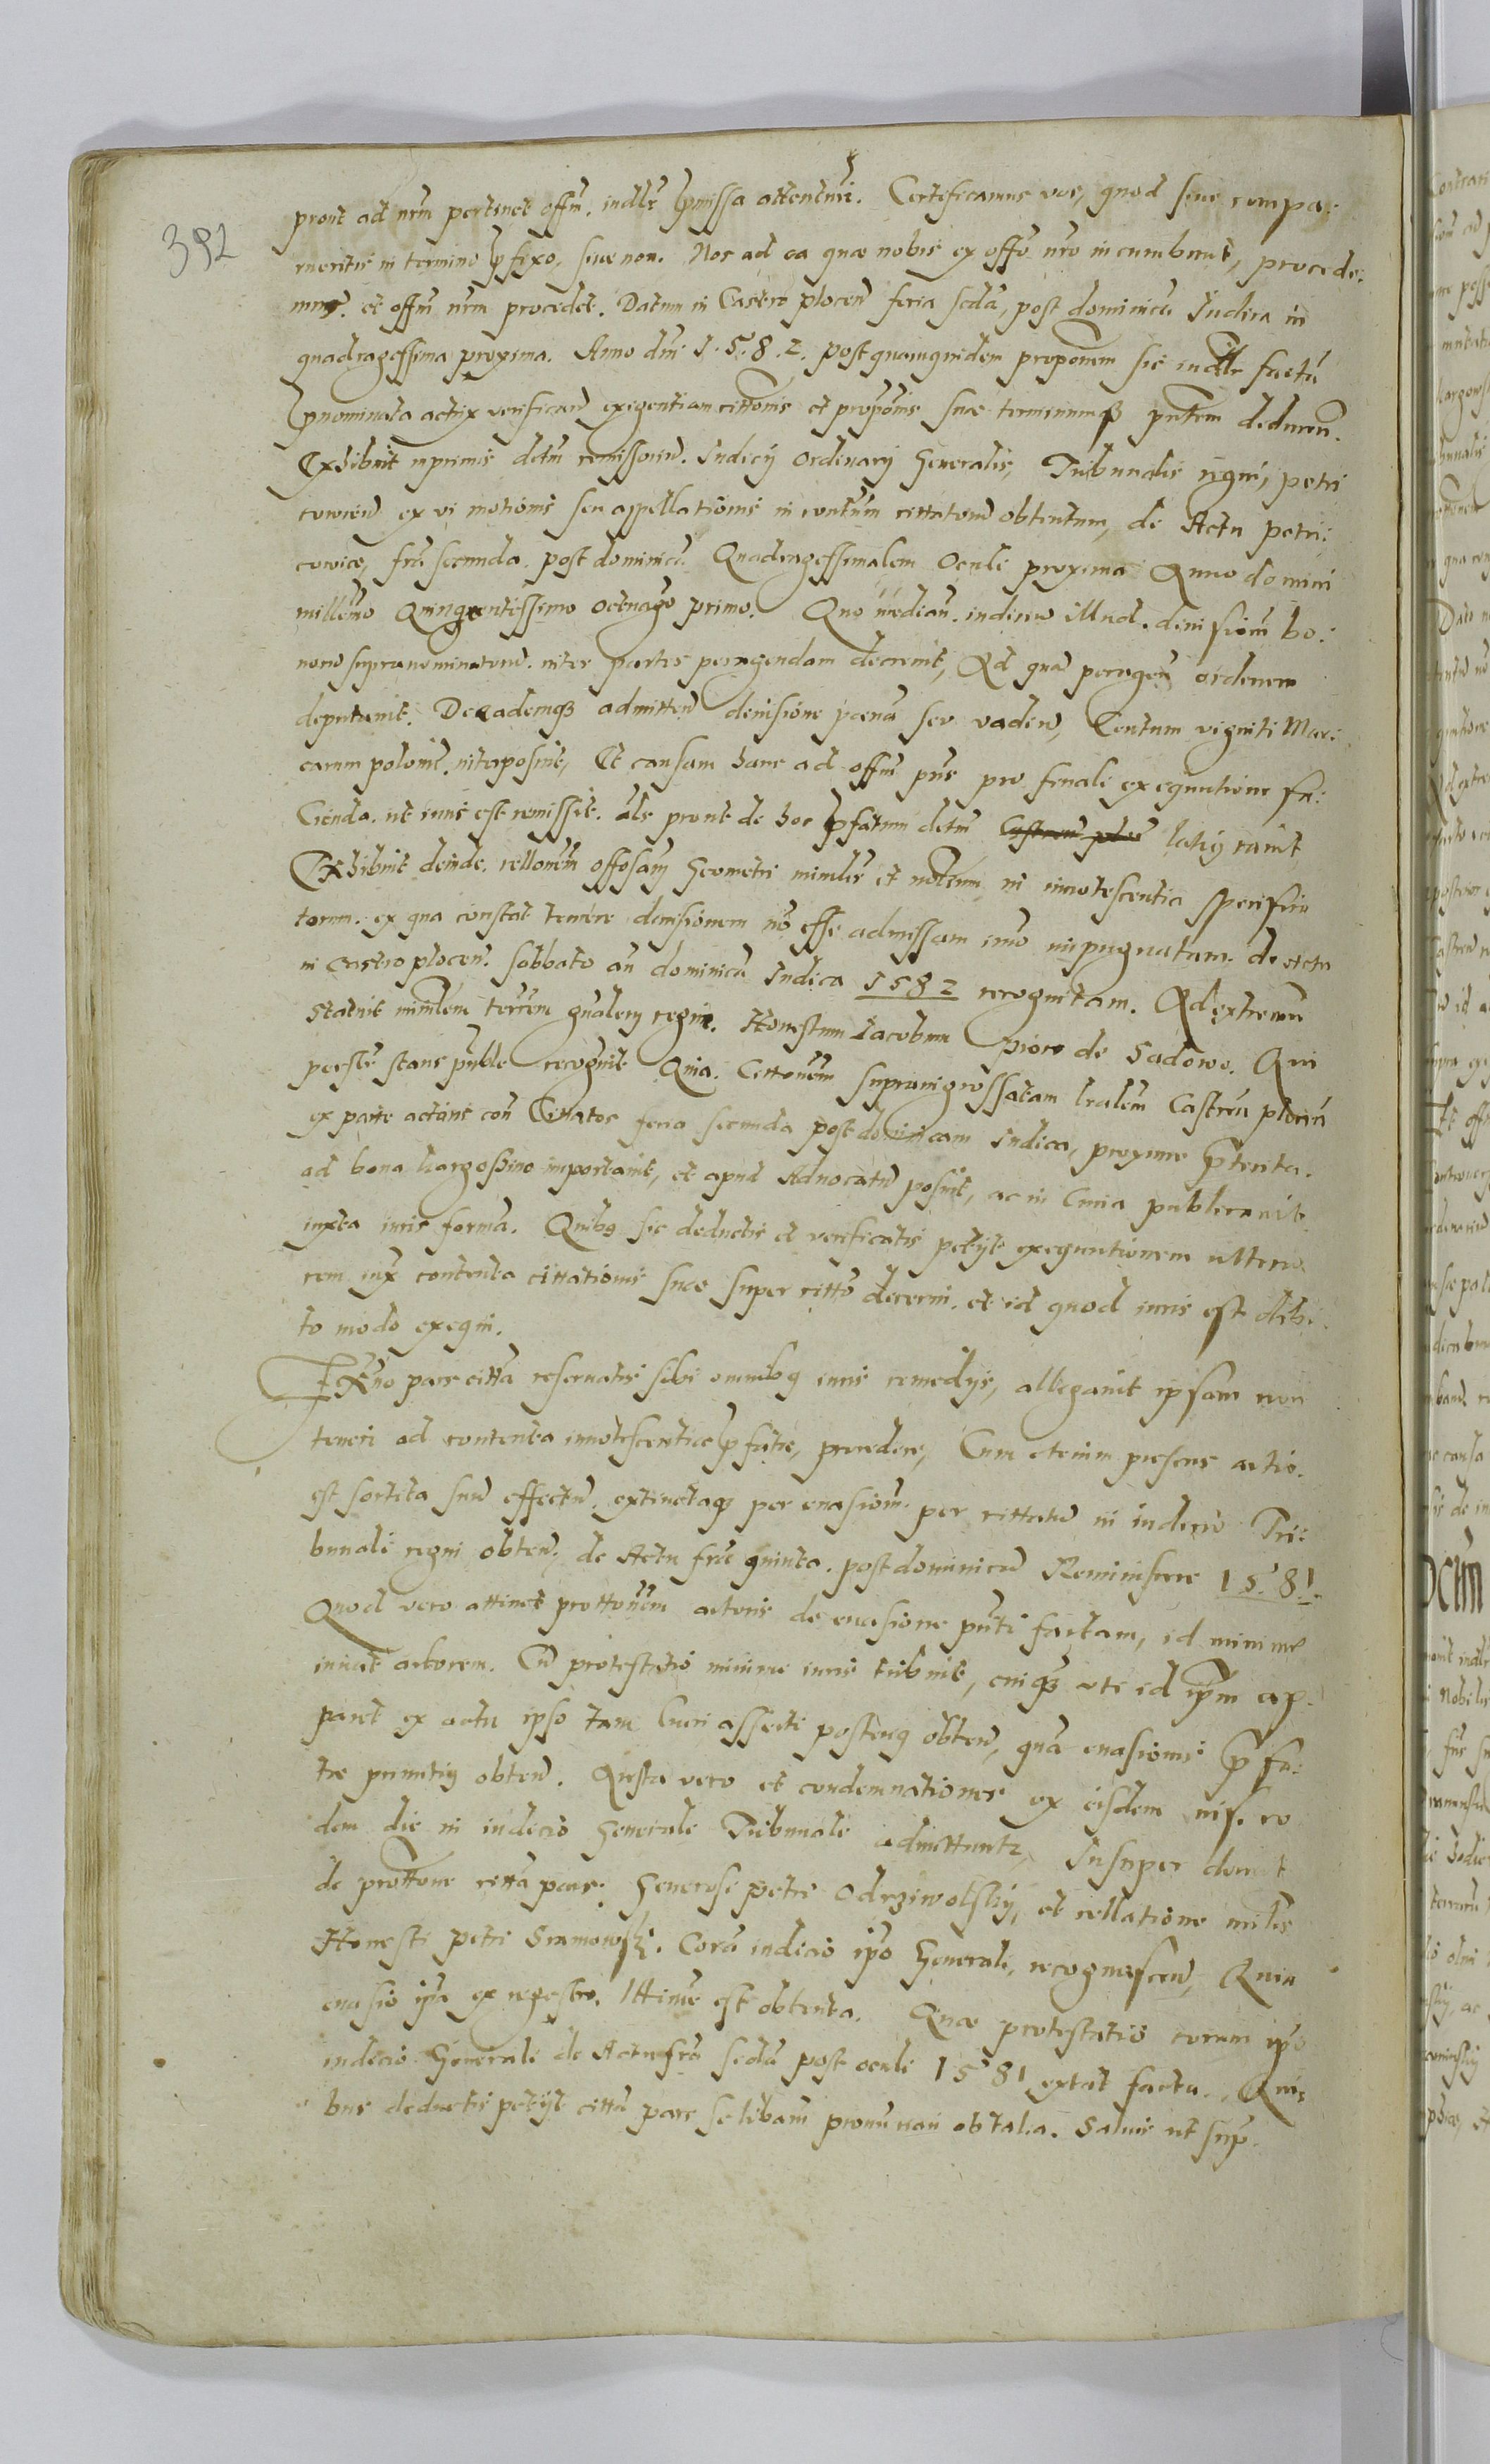 392
prout ad nrm pertinet offm. indlr pmissa attenturi. Certificamus vos, quod siue compa:
rueritis in termino pfixo, siue non. Nos ad ea quæ nobis ex offo nro incumbunt, procede:
mus. et offm nrm procedet. Datum in Castro plocen feria scda, post dominicā Iudica in
quadragessima proxima. Anno dni 1.5.8.2. postquamquidem proponem sic indlr factā
pnominata actrix verifican exigentiam cittonis et proponis suæ terminumq pntem deducen.
Exhibuit inprimis detm remissorium. Iudicij Ordinarij Generalis, Tribunalis regni, petri
couien ex vi motionis seu appellationis in contum cittatorum obtentum, de Actu petri:
couiæ, fria secunda. post dominicā Quadragessimalem Oculi proxima Anno domini
millemo Quingentessimo octuago primo. Quo median. indicium illud. diuisiom bo:
norum supranominatorum. inter partes peragendam decreuit, Ad quā peragen ordinem
deputauit. De eademq admitten diuisione pœnā seu vadium, Centum viginti Mar:
carum polonic. interposuit, Et causam hanc ad offm pns pro finali exequutione fa:
cienda. ut iuris est remissit. als prout de hoc pfatum detm latiq cauit
Exhibuit deinde. rellonem offosam Geometri minlis et nobilium in innotescentia specifica
torum. ex qua constat tenore diuisionem nō esse admissam imo impugnatam. de actu
in Castro plocen. sabbato an dominicā Iudica 1582 recognitam. Ad extremū
statuit minlem terrem gnalem regni. Honestum Iacobum Pioro de Sadowo. Qui
persolr stans puble recognit Quia. Cittonem supraingrossatam lralem Castren plocen
ex parte actoris con Citatos feria secunda post dominicam Iudica, proxime pterita.
ad bona Largossino importauit, et apud Aduocatum posuit, ac in Curia publicauit
iuxta iuris formā. Quibq sic deductis et verificatis petijt exequutionem ulterio
rem iux contenta cittationis suæ super citto decerni. et id quod iuris est debi
to modo exequi.
Exno pars citta reseruatis sibi omnibq iuris remedijs, allegauit ipsam non
teneri ad contenta innotescentiæ pfatæ, procedere, Cum etenim presens actio.
est sortita suum effectum. extinctaq per euasiom. per cittatum in iudicio Tri:
bunali regni obten. de Actu fria quinta. post dominicam Reminiscere 1581.
Quod vero attinet prottonem actoris de euasione pnti factam, id minime
iuuat actorem. Cū protestatio minime iuris tribuit, cuiq uti id ipm ap-
paret ex actu ipso tam lucri assecti posteriq obten, quā euasionis pfa:
tæ primitiq obten. Iusta vero et condemnationes ex eisdem nisi eo
dem die in iudicio Generale Tribunale admittuntr, Insuper docuit
de prottone citta pars. Generosi Petri Odrziwolskij, et rellatione minlis
Honesti petri Sramowski. Corā iudicio ipso Generali, recognoscen, Quia
euasio ipsa ex regestro. Ittime est obtenta. Quæ protestatio coram ipso
iudicio Generali de Actu fria scda post oculi 1581 extat facta. Qui
bus deductis petijt citta pars se liberam pronunciari ob talia. Saluis ut sup.